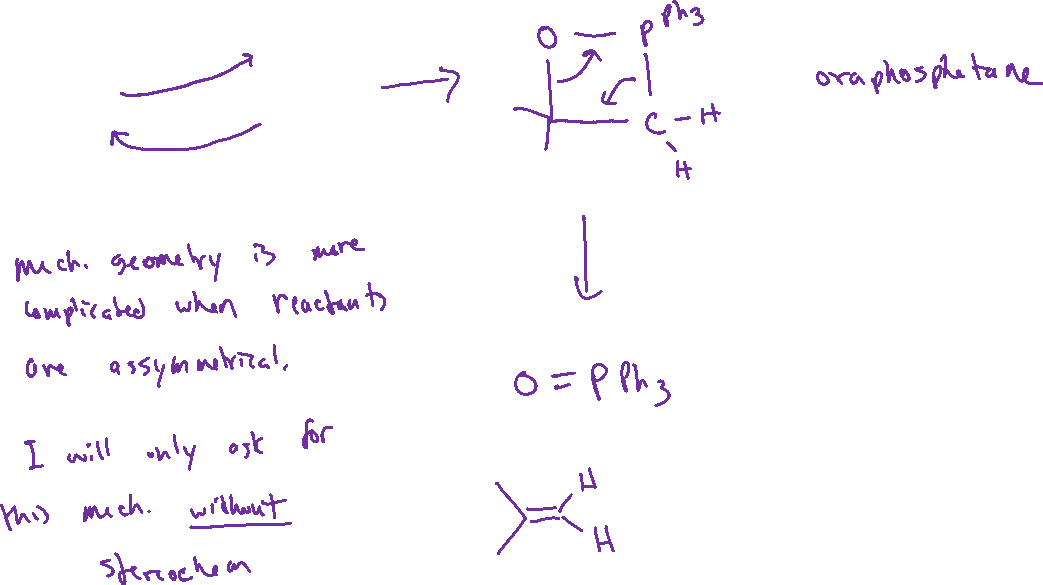 O — P Ph3
oraphosphetane
C - H
H
mech. geometry is more
complicated when reactants
are assymmetrical.
O = P Ph3
I will only ask for
this mech. without
stereochem
H
H